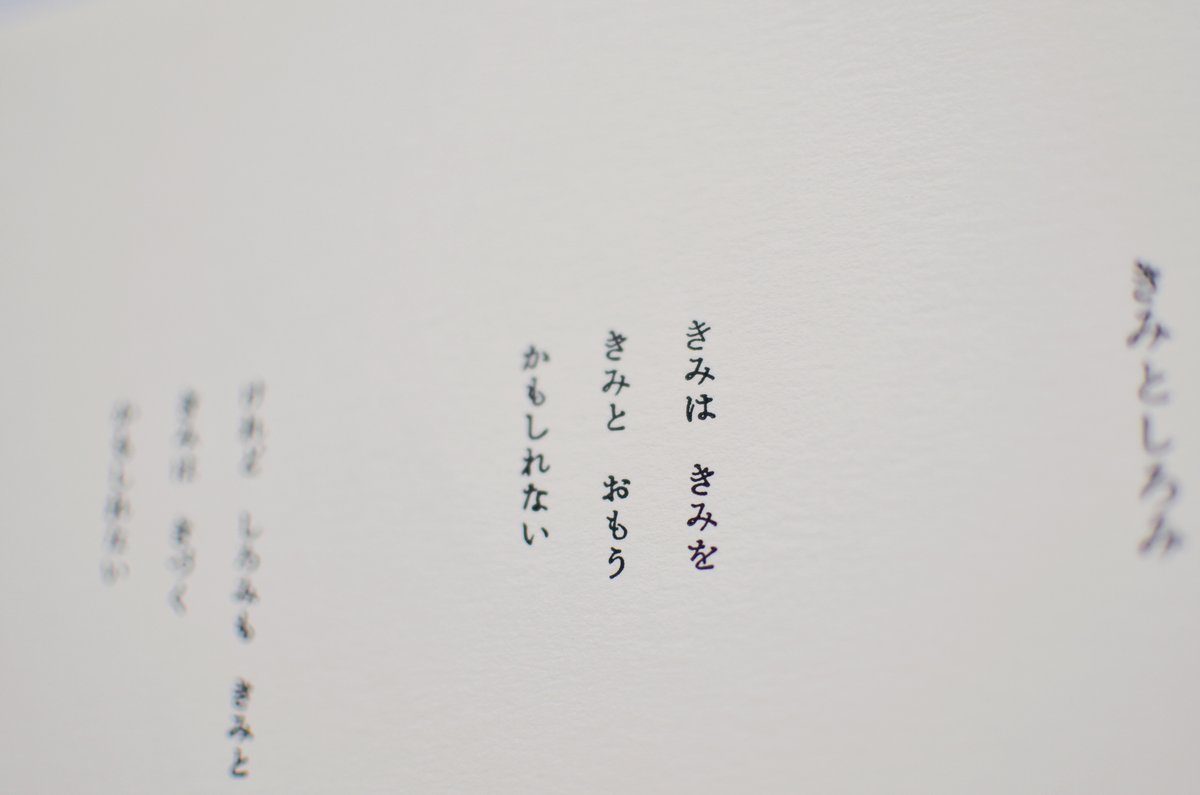 きみとしろみ
きみは　きみを
きみと　おもう
かもしれない
けれど　しろみも　きみと
きみは　きづく
かもしれない